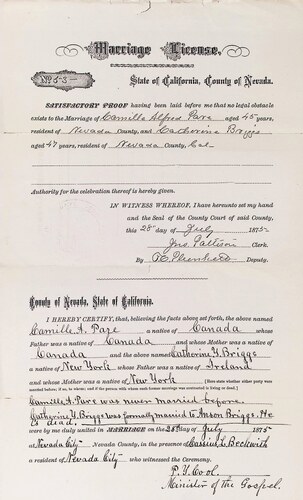 Marriage License.
No. 53
State of California, County of Nevada.
SATISFACTORY PROOF having been laid before me that no legal obstacle
exists to the Marriage of Camille Alfred Pare aged 45 years,
resident of Nevada County, and Catherine Briggs
aged 47 years, resident of Nevada County, Cal
Authority for the celebration thereof is hereby given.
IN WITNESS WHEREOF, I have hereunto set my hand
and the Seal of the County Court of said County,
this 28th day of July 1875
Jno Pattison Clerk.
By Deputy.
County of Nevada, State of California.
I HEREBY CERTIFY, that, believing the facts above set forth, the above named
Camille A. Pare a native of Canada whose
Father was a native of Canada and whose Mother was a native of
Canada and the above named Catherine Y. Briggs
a native of New York whose Father was a native of Ireland
and whose Mother was a native of New York (Here state whether either party were married
before, if so, to whom; and if the person with whom such former marriage was contracted is living or dead.)
Camille A. Pare was never married before.
Catherine Y. Briggs was formally married to Anson Briggs. He
is dead.
were by me duly united in MARRIAGE on the 28th day of July 1875
at Nevada City Nevada County, in the presence of Cassius L. Beckwith
a resident of Nevada City who witnessed the Ceremony.
P. Y. Cool.
Minister of the Gospel.